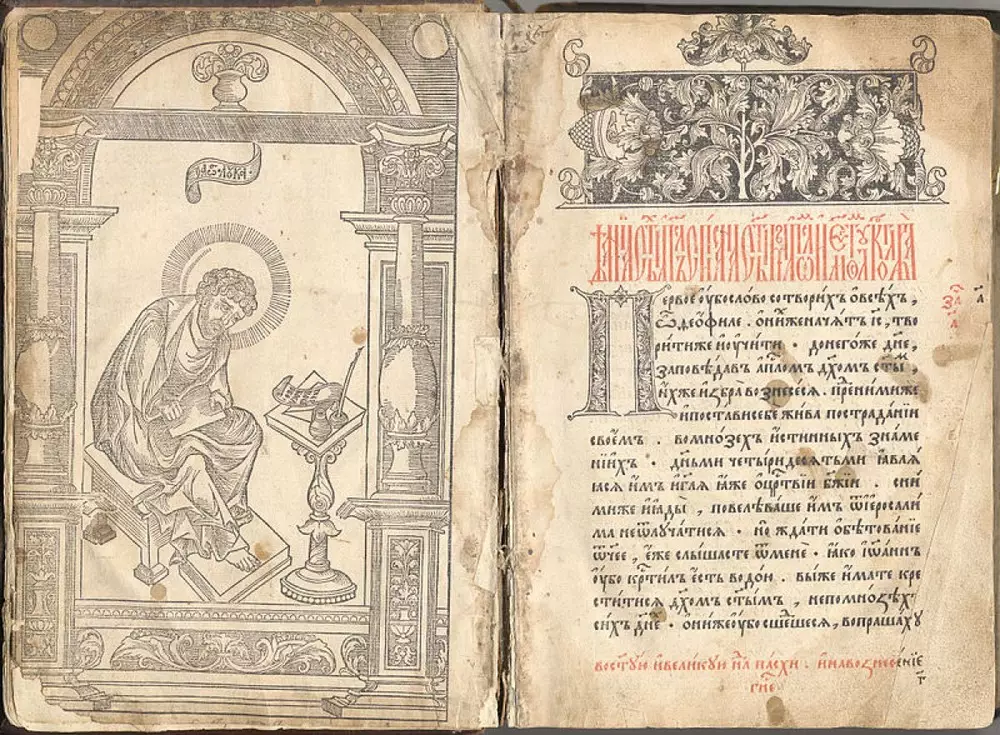 лꙋка
Первое ᲂу҆бо слово сотворихъ ѡ всѣхъ ,
ѽ ѳеѡфиле . ѡ ниⷯже начатъ і҃с , тво
рити же и҆ ᲂу҆чити · до негоже дн҃е ,
заповѣдавъ а҆пⷭ҇ломъ дх҃омъ ст҃ыⷨ ,
и҆хже и҆збра вознесесѧ . пред ними же
и҆ постави себе жива по страданїи
своемъ . во мнозехъ и҆стинныхъ знаме
нїихъ · дн҃ьми четыридесѧтьми ꙗ҆влѧ
ꙗсѧ имъ и҆ гл҃ѧ ꙗ҆же ѡ҆ црⷭ҇твїи бж҃їи . с ни
миже и҆ ꙗ҆ды , повелѣваше и҆мъ ѿ і҆ерⷭ҇ли
ма не ѿлꙋчатисѧ · но ждати ѡ҆бѣтованїе
ѿч҃ее , е҆же слышасте ѿ мене · ꙗ҆ко і҆ѡ҃аннъ
ᲂу҆бо крⷭ҇тилъ е҆сть водою . вы же и҆мате кре
ститисѧ дх҃омъ ст҃ымъ , не по мноѕѣхъ
сихъ дн҃е · ѡ҆ни же ᲂу҆бо сшеⷣшесѧ , вопрашахꙋ
в ст҃ꙋю и҆ великꙋю нⷣлѧ пасхи . и҆ на вознесенїе
гⷭ҇не